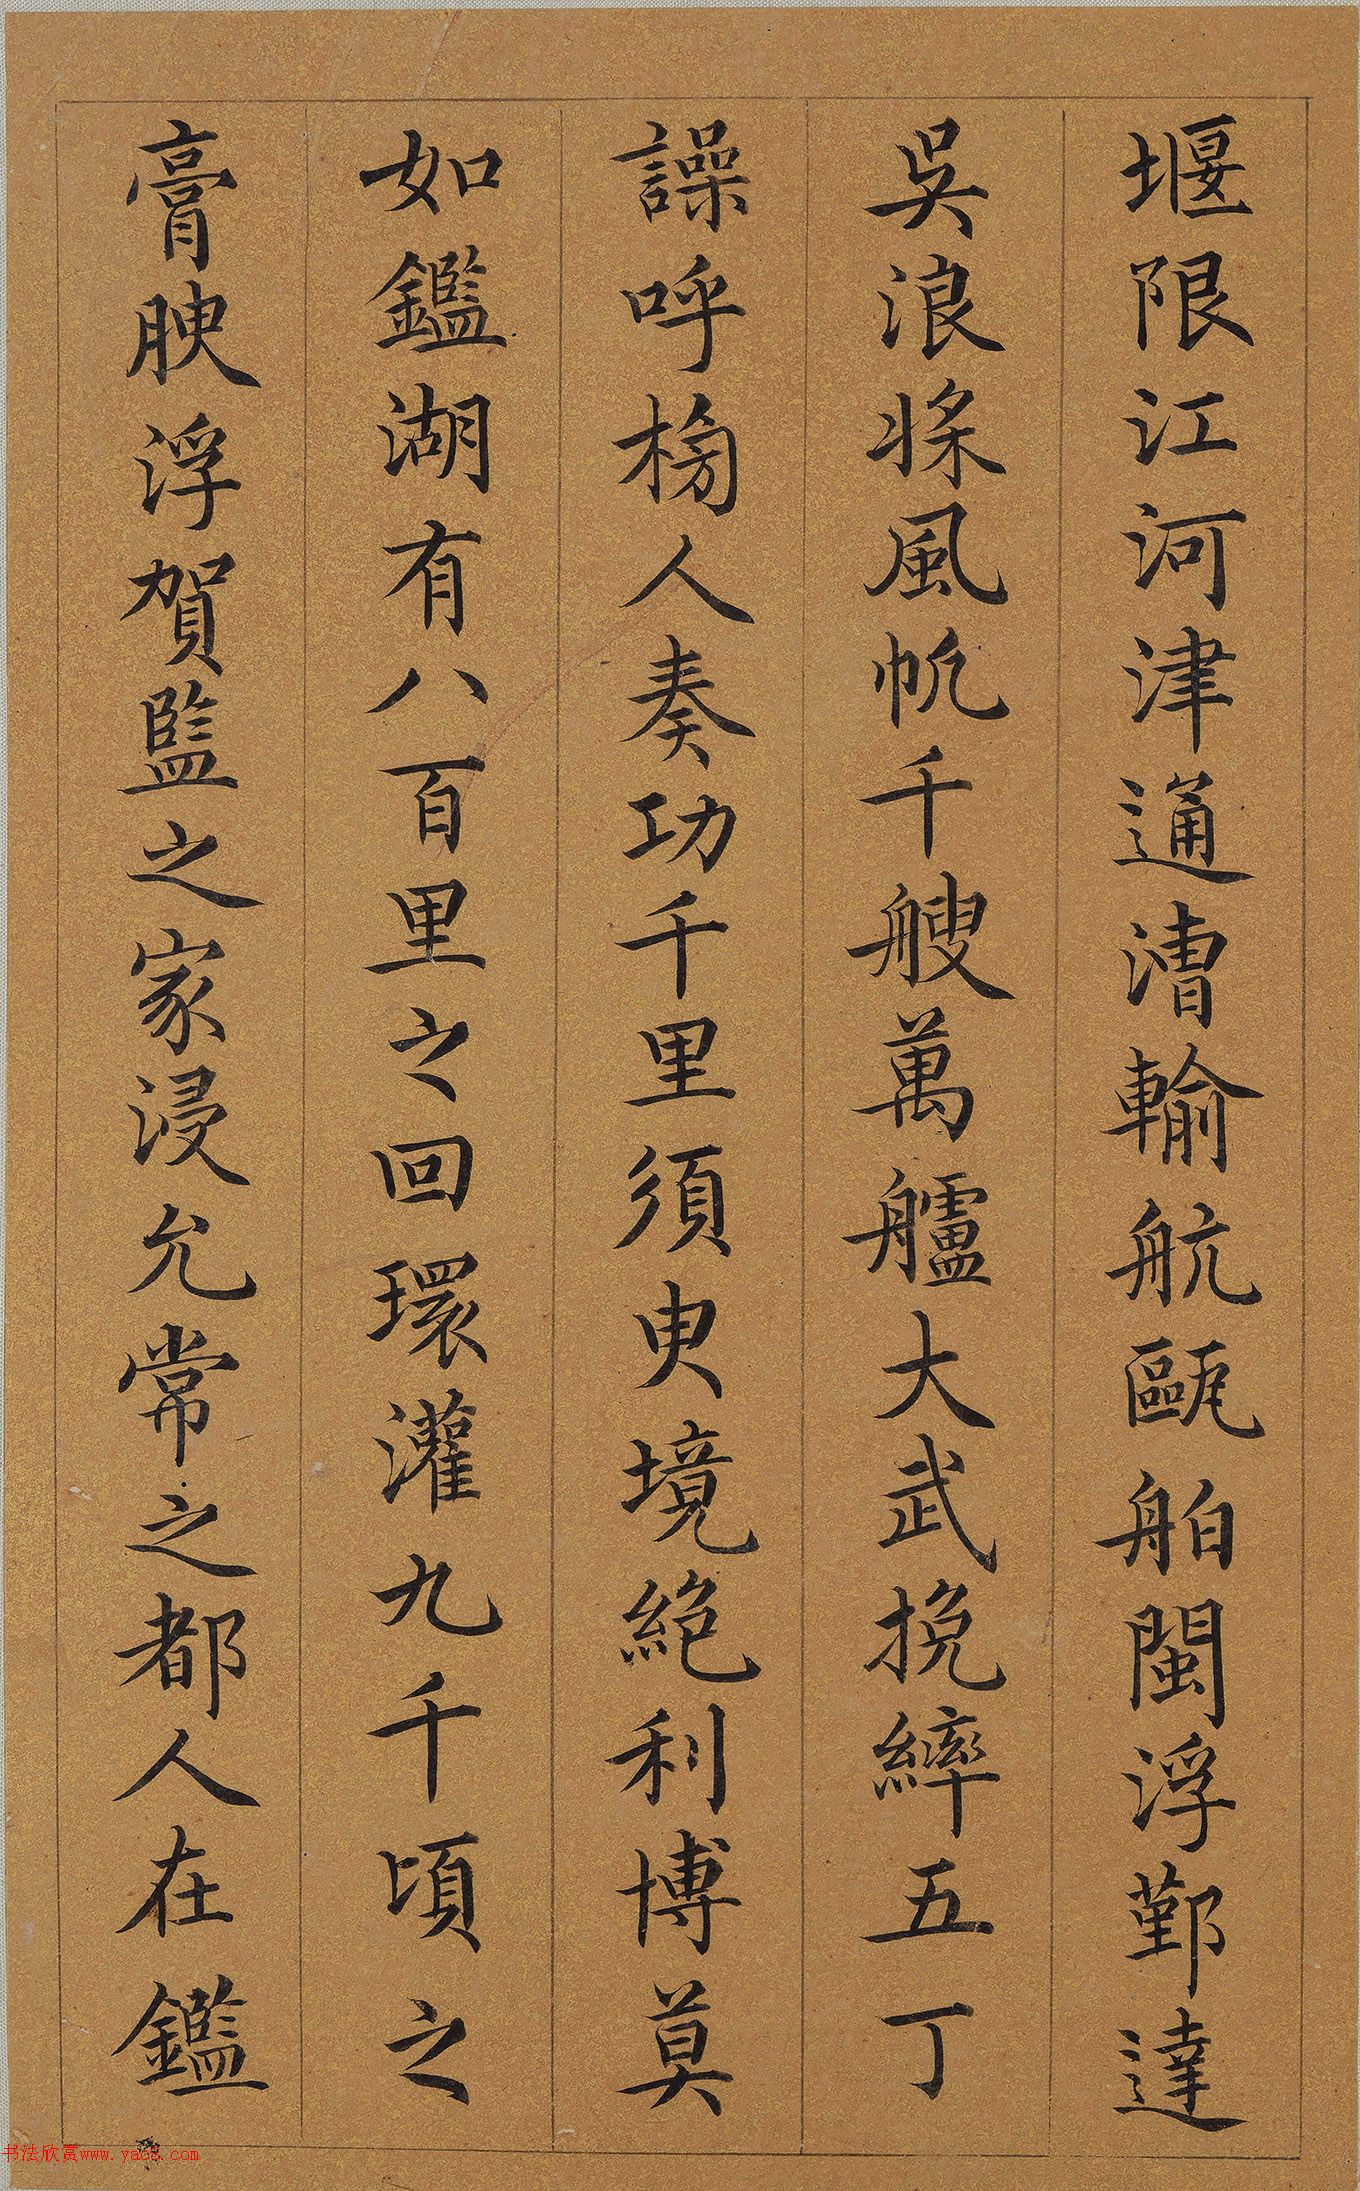 堰限江河津通漕輸航甌舶閩浮鄞達
吳浪槳風帆千艘萬艫大武挽繂五丁
譟呼榜人奏功千里須臾境絕利博莫
如鑑湖有八百里之回環灌九千頃之
膏腴浮賀監之家浸允常之都人在鑑
书法欣赏www.yac8.com